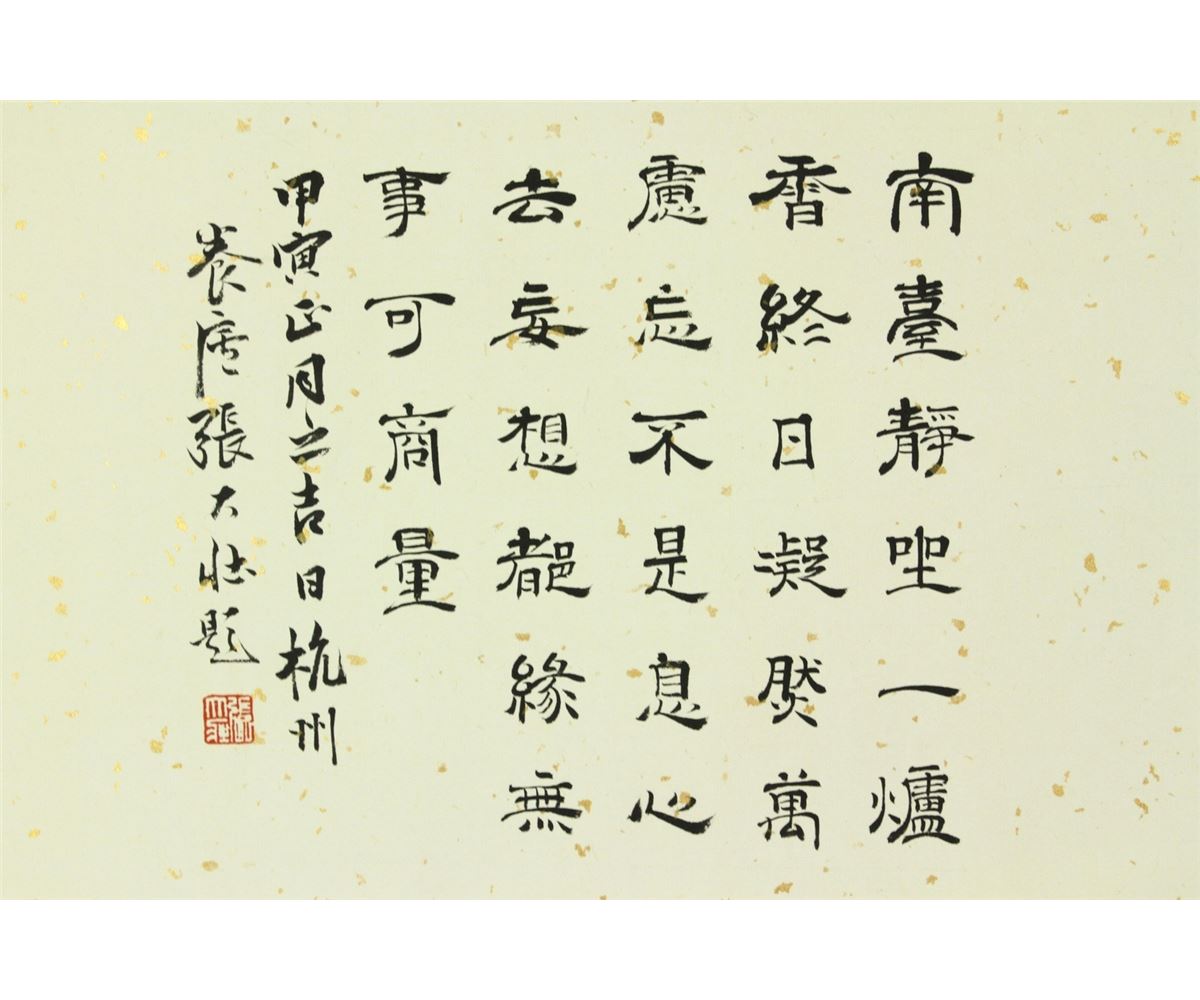 南臺靜坐一爐
香終日凝然萬
慮忘不是息心
去妄想都緣無
事可商量
甲寅正月之吉日杭州
養廬張大壯題